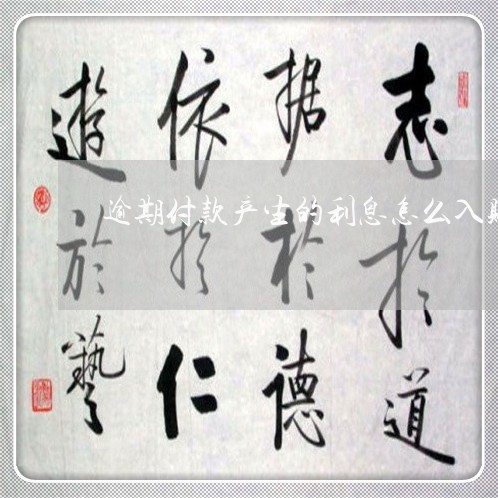 志於道
据於德
依於仁
遊於藝
逾期付款产生的利息怎么入